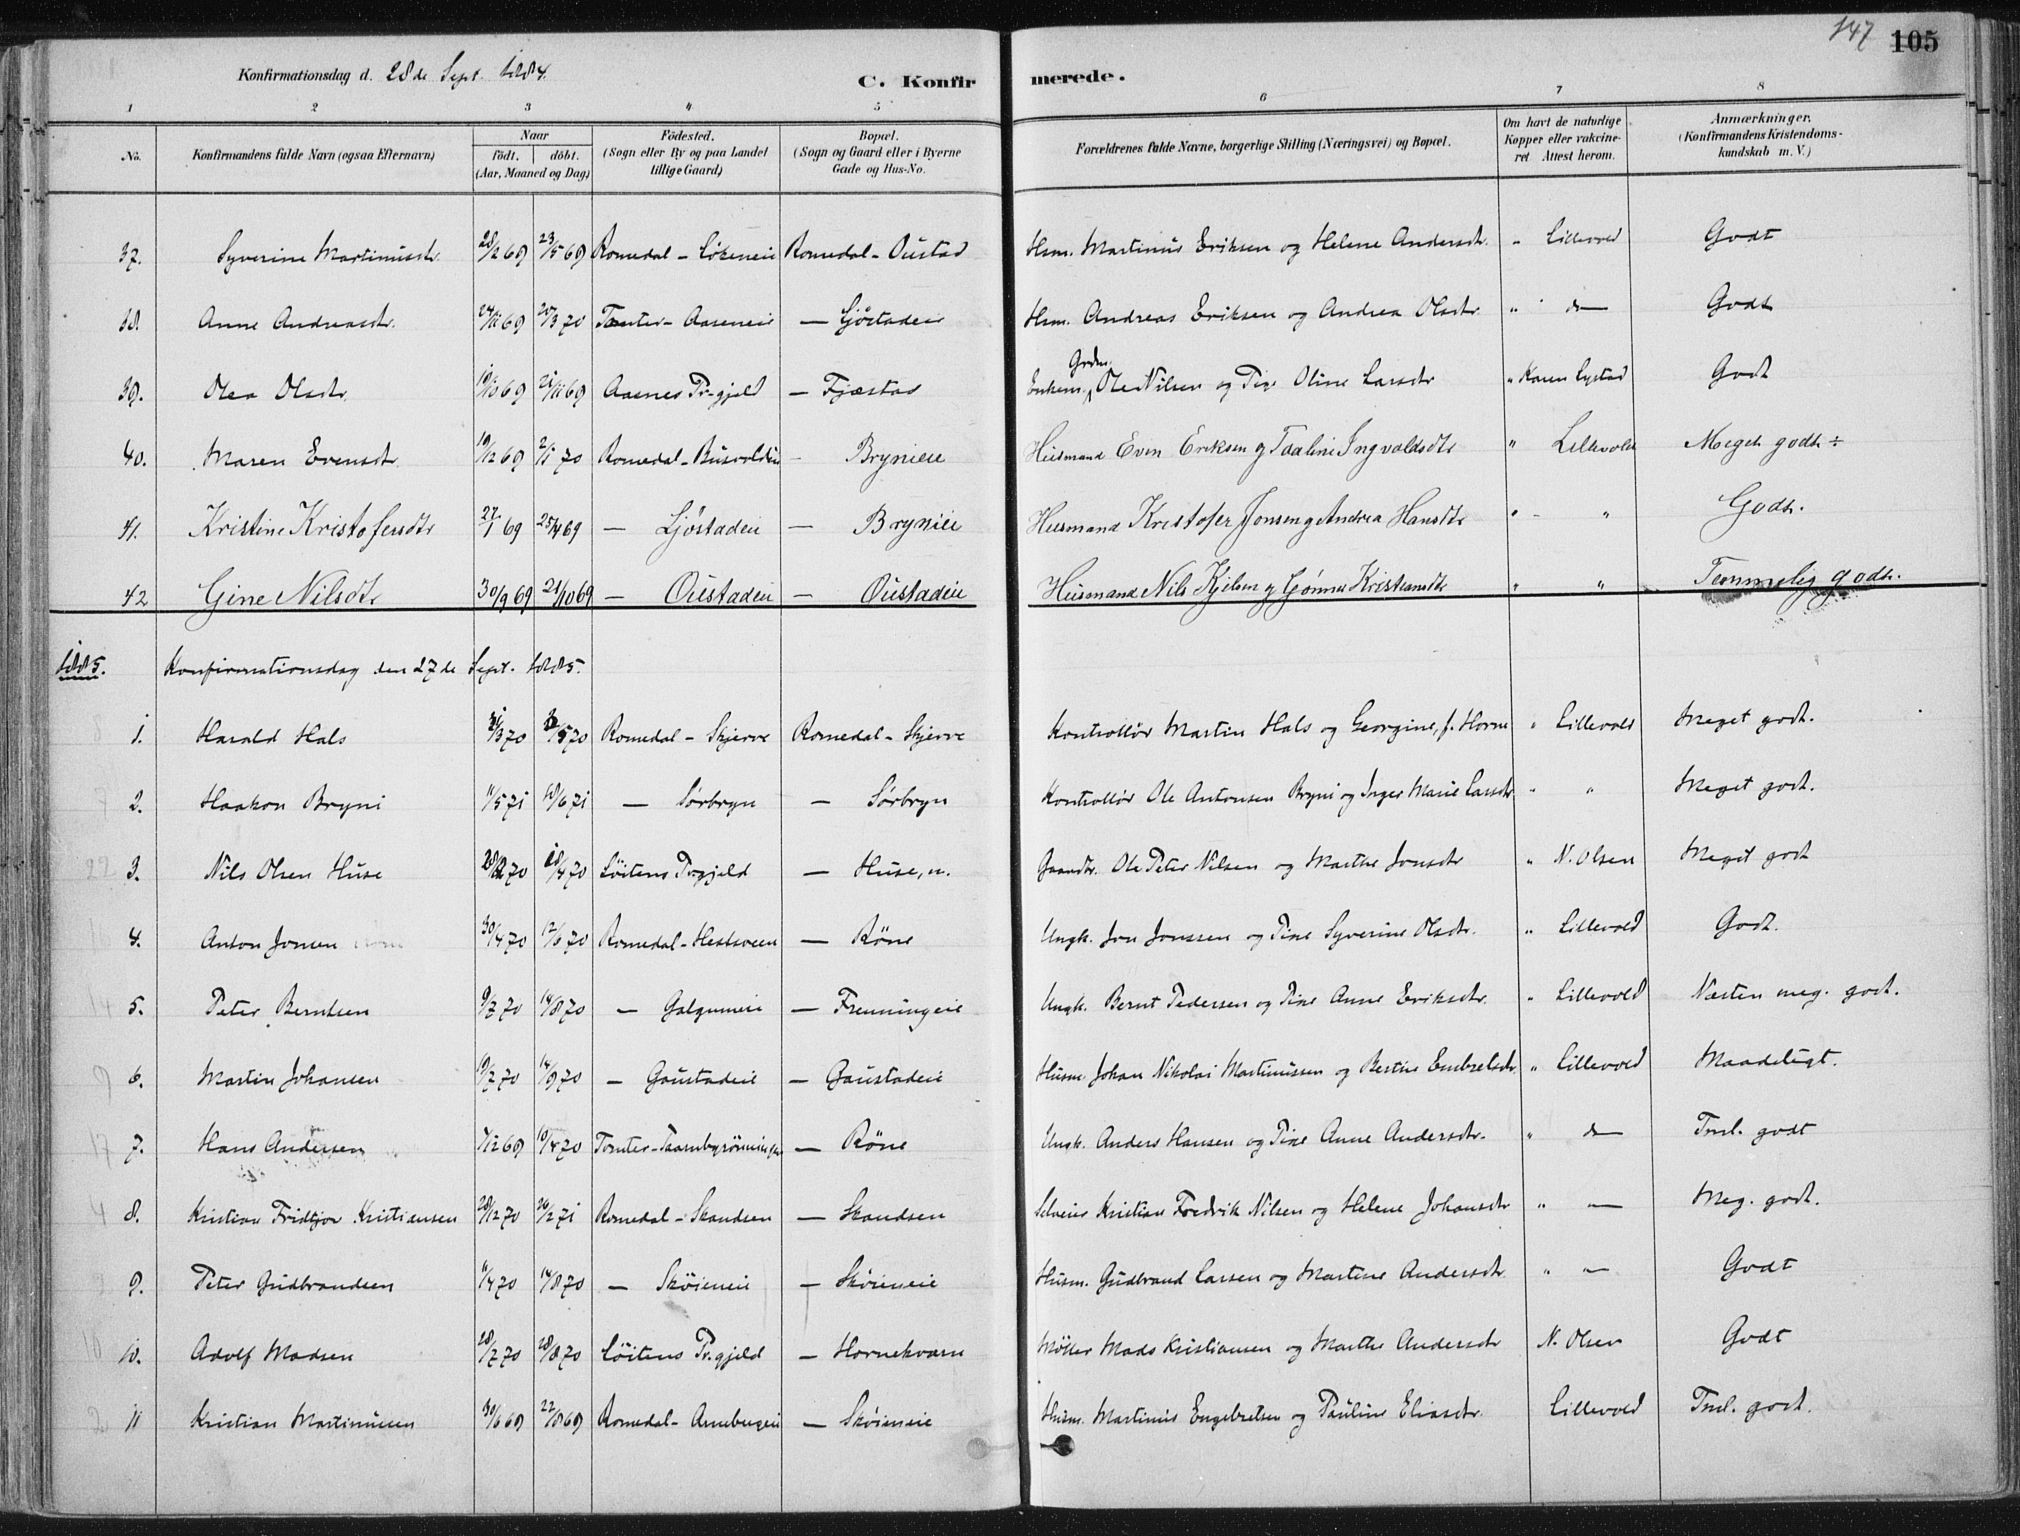 147 105
Konfirmationsdag d. 28de Sept. 1884.
C. Konfirmerede.
1 2 3 4 5 6 7 8
No. Konfirmandens fulde Navn (ogsaa Efternavn) Naar födt. döbt. (Aar, Maaned og Dag) Födested. (Sogn eller By og paa Landet tillige Gaard) Bopæl. (Sogn og Gaard eller i Byerne Gade og Hus-No. Forældrenes fulde Navne, borgerlige Stilling (Næringsvei) og Bopæl. Om havt de naturlige Kopper eller vakcineret Attest herom. Anmærkninger. (Konfirmandens Kristendomskundskab m. V.)
37. Syverine Martinusdtr. 28/2 69 23/5 69 Romedal - Løkeneie Romedal - Oustad Hsm. Martinus Eriksen og Helene Andersdtr. " Lillevold Godt
38. Anne Andreasdtr. 24/11 69 20/3 70 Tomter - Aaseneie — Ljöstadeie Hsm. Andreas Eriksen og Andrea Olsdtr. " do Godt
39. Olea Olsdtr. 19/10 69 21/11 69 Aasnes Pr.gjeld — Fjæstad Enkem. Grdm. Ole Nilsen og Pige Oline Larsdtr " Karen Lystad Godt
40. Maren Evensdtr. 19/12 69 2/1 70 Romedal - Busvoldeie - Brynieie Husmand Even Eriksen og Paaline Ingvaldsdtr " Lillevold Meget godt ÷
41. Kristine Kristofersdtr 27/1 69 25/4 69 — Ljöstadeie — Brynieie Husmand Kristofer Jonsen og Andrea Hansdtr " - " Godt.
42 Gine Nilsdtr 30/9 69 21/10 69 — Oustadeie — Oustadeie Husmand Nils Kjelsen og Gönner Kristiansdtr " " Temmelig godt.
1885. Konfirmationsdag den 27de Sept. 1885.
1. Harald Hals 31/3 70 /5 70 Romedal - Skjerve Romedal - Skjerve Kontrollør Martin Hals og Georgine, f. Horne " Lillevold Meget godt.
2. Haakon Bryni 11/5 71 18/6 71 — Sörbryn — Sörbryn Kontrollør Ole Antonsen Bryni og Inger Marie Larsdtr " " Meget godt.
3. Nils Olsen Huse 28/2 70 18/4 70 Löitens Pr.gjeld — Huse, n. Gaardbr. Ole Peter Nilsen og Marthe Jonsdtr " N. Olsen Meget godt
4. Anton Jonsen 30/4 70 12/6 70 Romedal - Hestsveen — Röne Ungk. Jon Jonssen og Pike Syverine Olsdtr. " Lillevold Godt.
5. Peter Berntsen 9/7 70 14/8 70 — Galgumeie — Frenningeie Ungk. Bernt Pedersen og Pike Anne Eriksdtr. " Lillevold Næsten meg. godt.
6. Martin Johansen 19/7 70 14/9 70 — Gaustadeie — Gaustadeie Husm. Johan Nikolai Martinussen og Berthe Embretsdtr. " Lillevold Maadeligt.
7. Hans Andersen 7/12 69 10/4 70 Tomter - Taarnbyrönningen — Röne Ungk. Anders Hansen og Pike Anne Andersdtr. " do Tml. godt
8. Kristian Fridtjov Kristiansen 28/12 70 26/2 71 Romedal - Skandsen — Skandsen Selveier Kristian Fredrik Nilsen og Helene Johansdtr " — Meg. godt.
9. Peter Gudbrandsen 11/4 70 14/8 70 — Sköieneie — Sköieneie Husm. Gudbrand Larsen og Martine Andersdtr " — Godt
10. Adolf Madsen 28/7 70 28/8 70 Löitens Pr.gjeld — Hornekvarn Möller Mads Kristiansen og Marthe Andersdtr N. Olsen Godt
11 Kristian Martinusen 30/6 69 22/8 69 Romedal - Arnebergeie — Sköieneie Husm. Martinus Engebretsen og Pauline Eliasdtr. Lillevold Tml. godt.